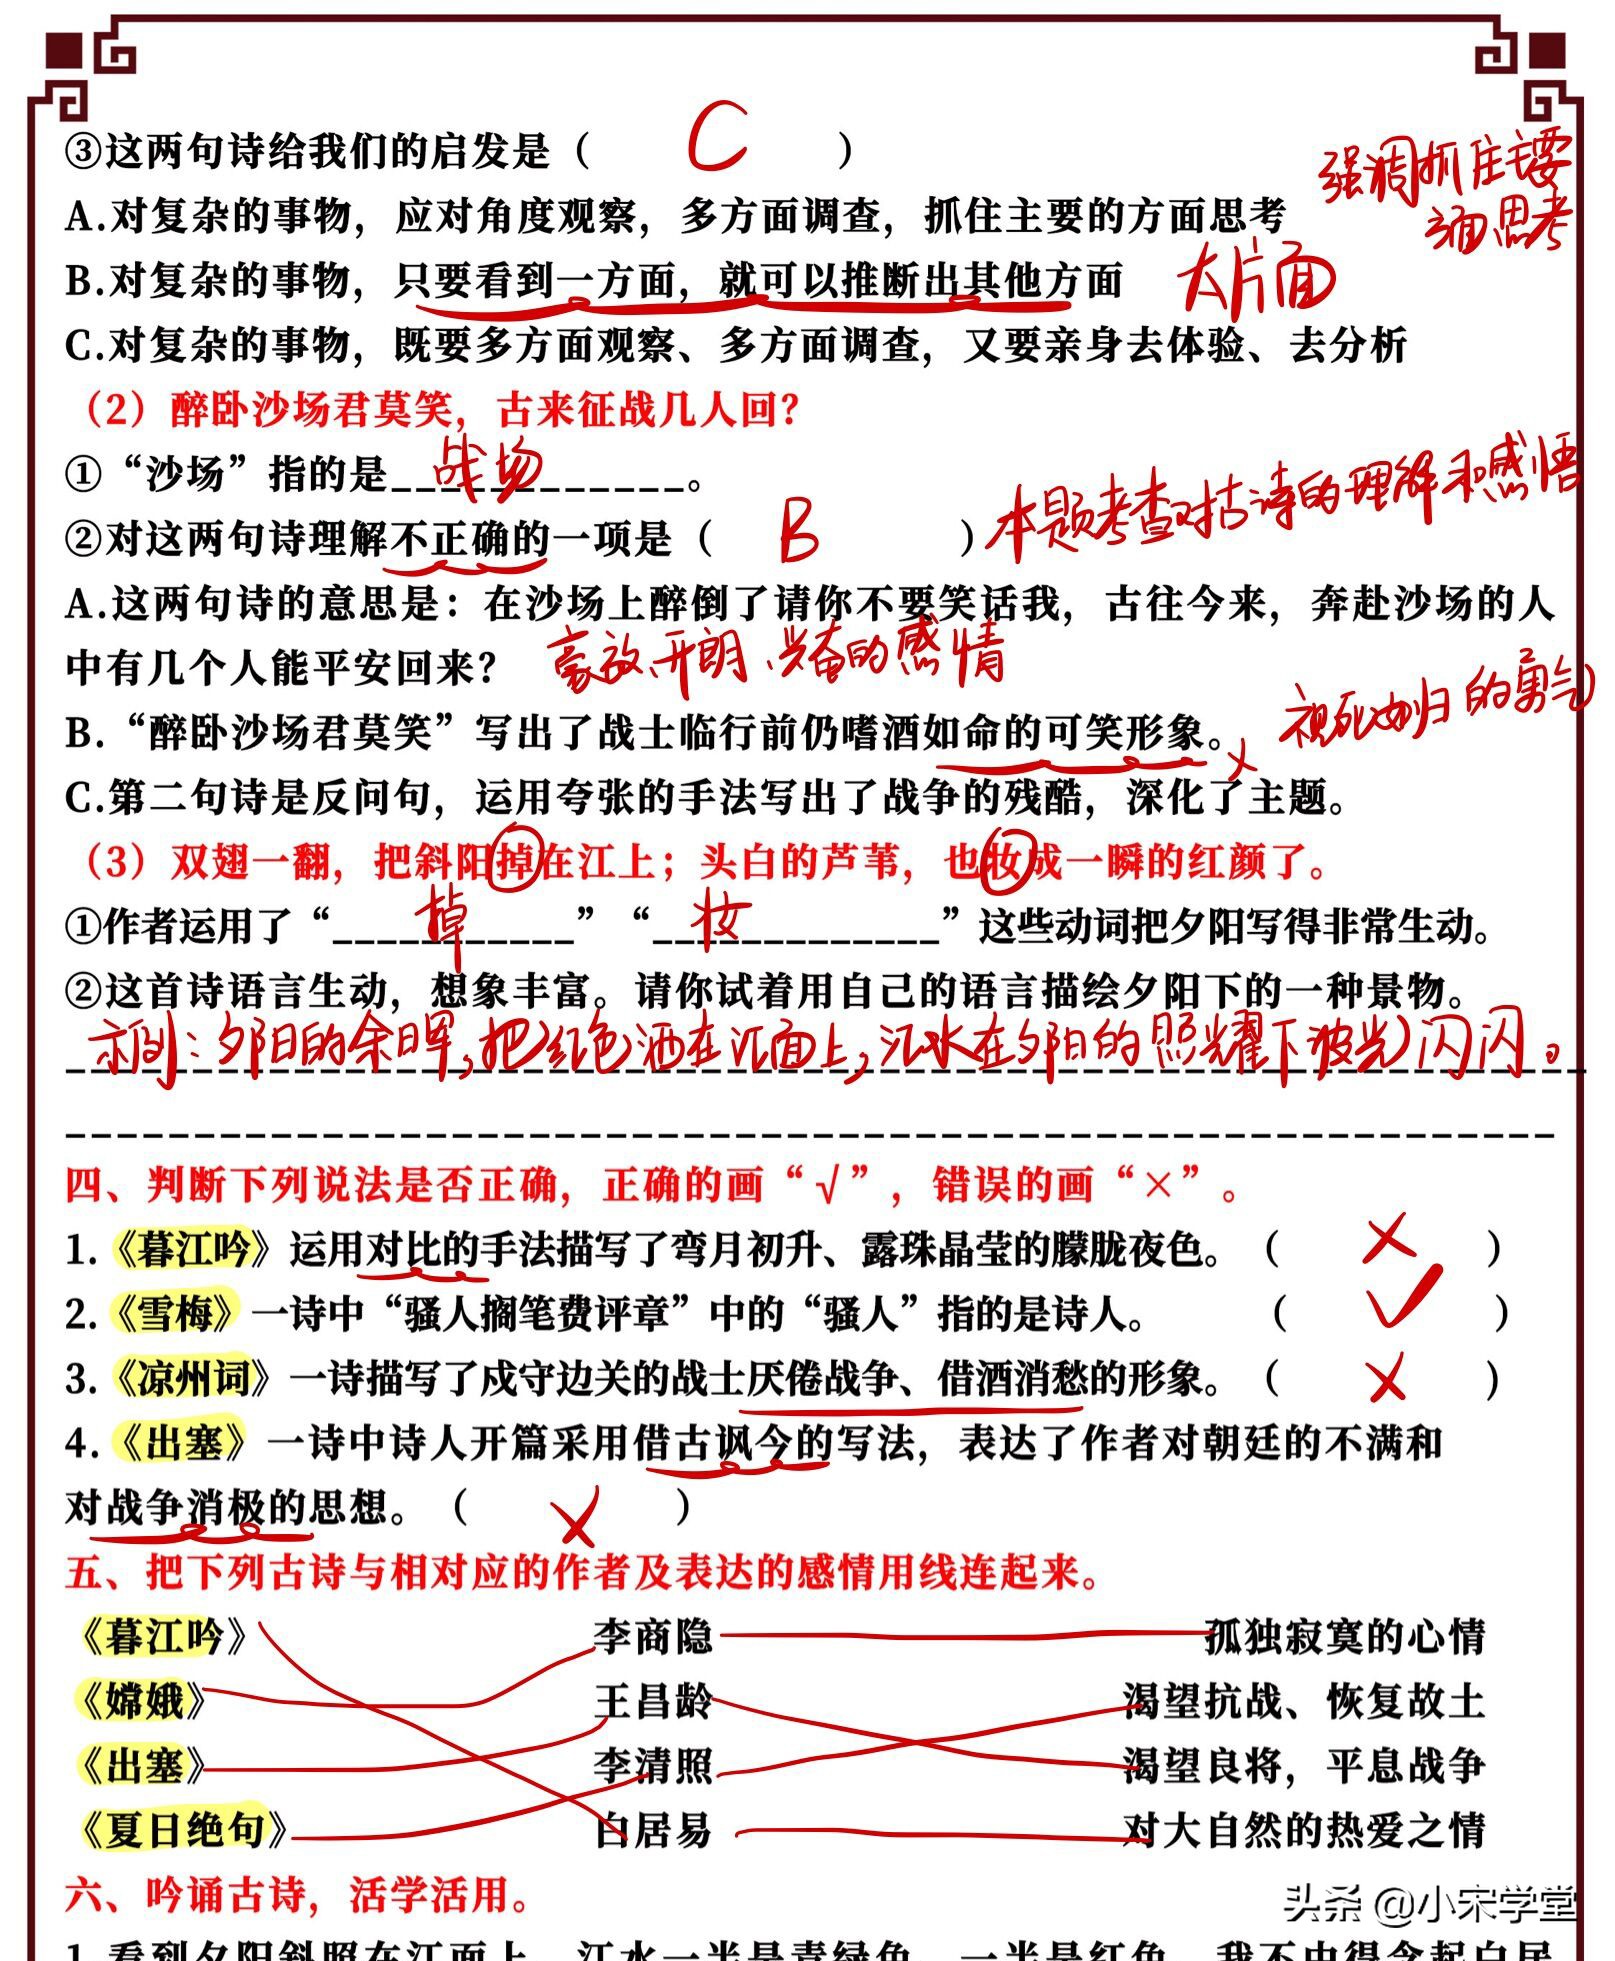 ③这两句诗给我们的启发是（ C ）
强调抓住主要
方面思考
A.对复杂的事物，应对角度观察，多方面调查，抓住主要的方面思考
B.对复杂的事物，只要看到一方面，就可以推断出其他方面 太片面
C.对复杂的事物，既要多方面观察、多方面调查，又要亲身去体验、去分析
（2）醉卧沙场君莫笑，古来征战几人回？
①“沙场”指的是____战场________。
②对这两句诗理解不正确的一项是（ B ）本题考查对古诗的理解和感悟
A.这两句诗的意思是：在沙场上醉倒了请你不要笑话我，古往今来，奔赴沙场的人
中有几个人能平安回来？ 豪放、开朗、兴奋的感情
视死如归的勇气
B.“醉卧沙场君莫笑”写出了战士临行前仍嗜酒如命的可笑形象。×
C.第二句诗是反问句，运用夸张的手法写出了战争的残酷，深化了主题。
（3）双翅一翻，把斜阳掉在江上；头白的芦苇，也妆成一瞬的红颜了。
①作者运用了“____掉____”“____妆____”这些动词把夕阳写得非常生动。
②这首诗语言生动，想象丰富。请你试着用自己的语言描绘夕阳下的一种景物。
示例：夕阳的余晖，把红色洒在江面上，江水在夕阳的照耀下波光闪闪。
四、判断下列说法是否正确，正确的画“√”，错误的画“×”。
1.《暮江吟》运用对比的手法描写了弯月初升、露珠晶莹的朦胧夜色。（ × ）
2.《雪梅》一诗中“骚人搁笔费评章”中的“骚人”指的是诗人。（ √ ）
3.《凉州词》一诗描写了戍守边关的战士厌倦战争、借酒消愁的形象。（ × ）
4.《出塞》一诗中诗人开篇采用借古讽今的写法，表达了作者对朝廷的不满和
对战争消极的思想。（ × ）
五、把下列古诗与相对应的作者及表达的感情用线连起来。
《暮江吟》 李商隐 孤独寂寞的心情
《嫦娥》 王昌龄 渴望抗战、恢复故土
《出塞》 李清照 渴望良将，平息战争
《夏日绝句》 白居易 对大自然的热爱之情
六、吟诵古诗，活学活用。
头条 @小宋学堂
1.看到夕阳斜照在江面上，江水一半是青绿色，一半是红色，我不由得念起白居